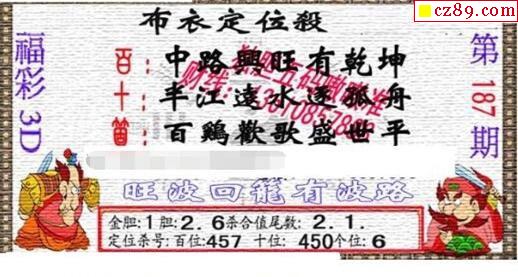 cz89.com
布衣定位殺
福彩3D
第187期
百：中路興旺有乾坤
十：半江遠水逐孤舟
個：百鷄歡歌盛世平
旺波回龍有波路
金胆:1胆:2.6杀合值尾数:2.1.
定位杀号:百位:457 十位:450个位:6